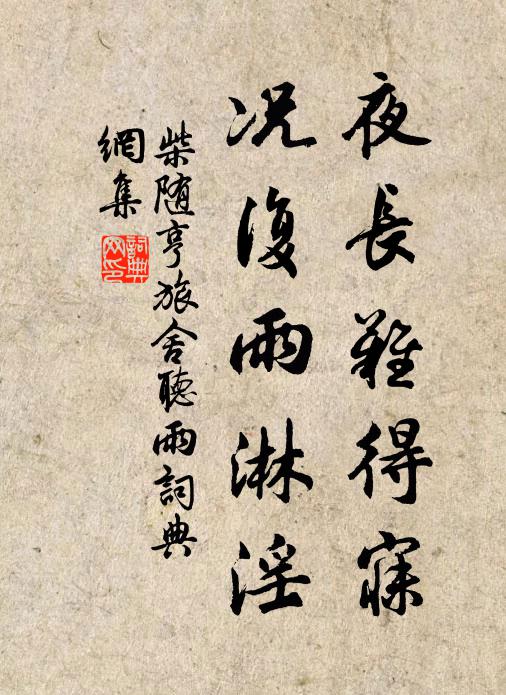 夜長難得寐
況復雨淋淫
柴随亨旅舍聽雨詞典
網集
詞典網印